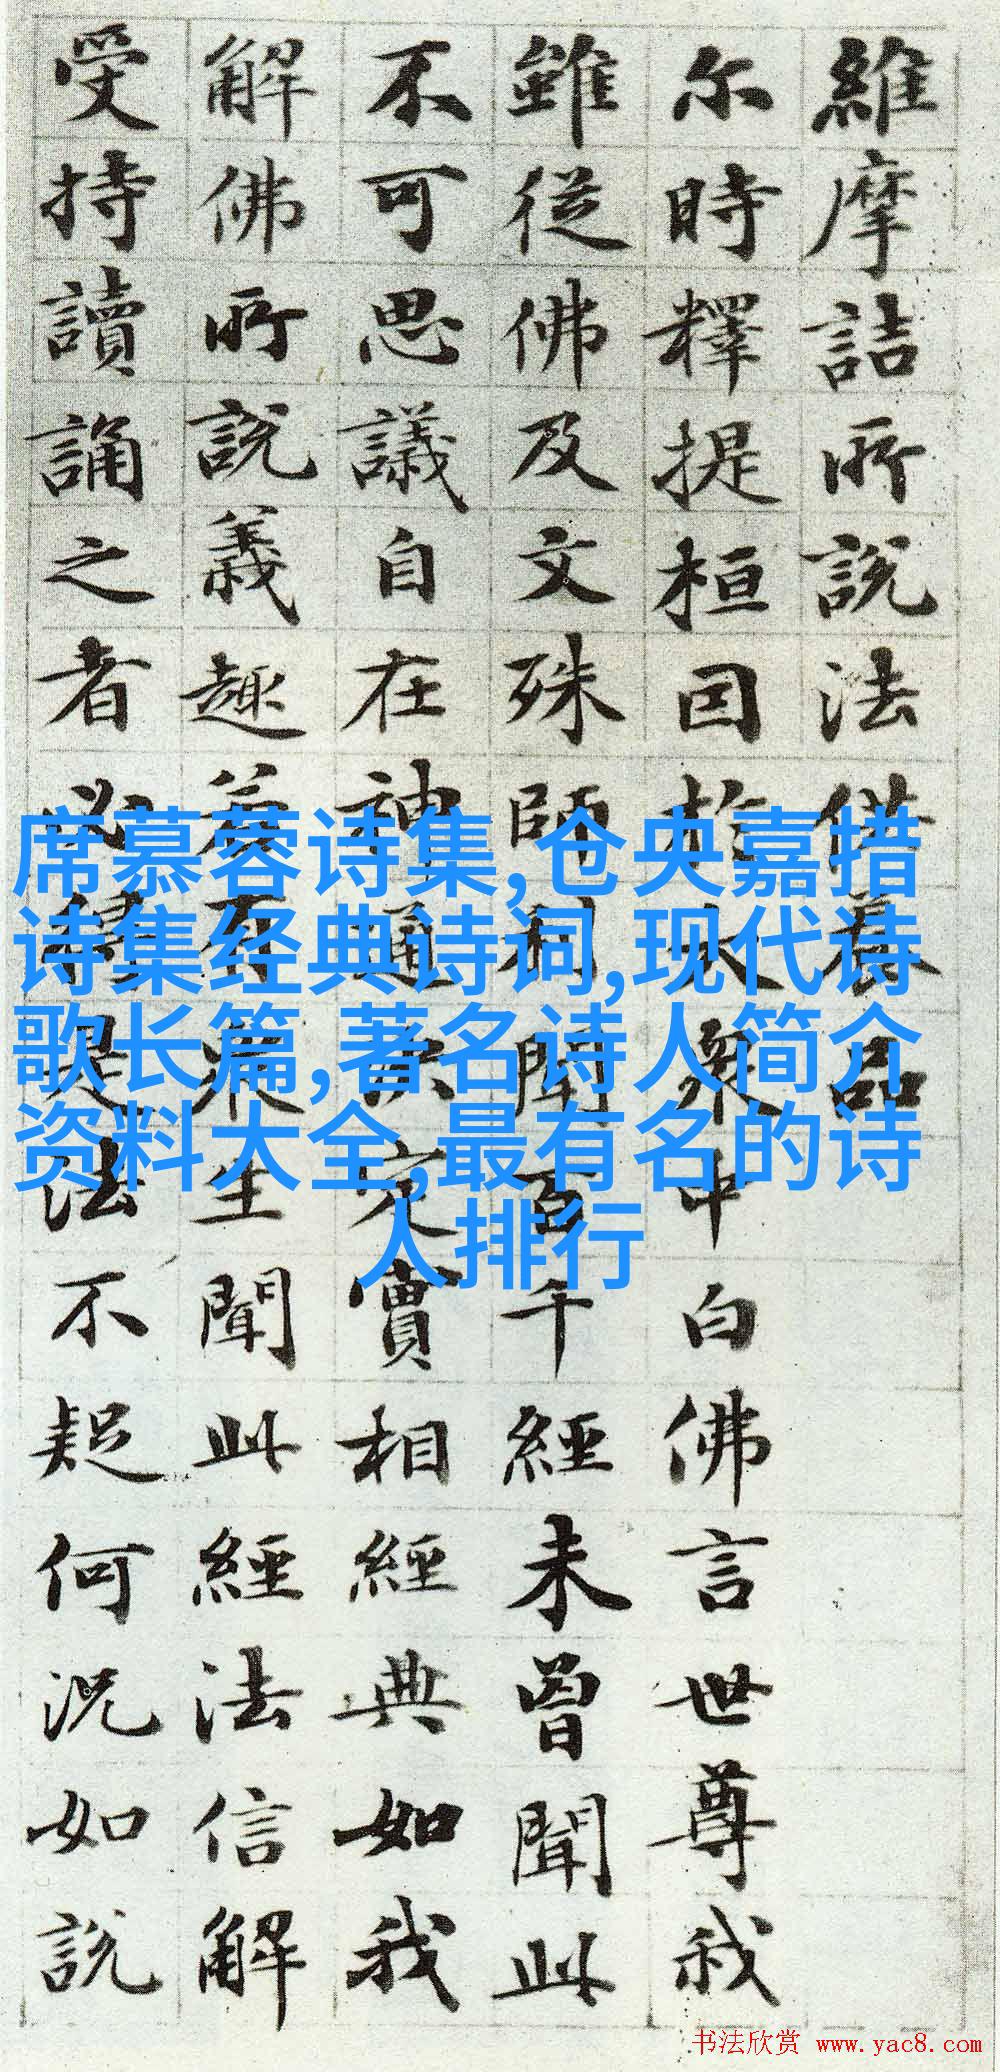 維摩詰所説法供養品
尔時釋提桓因於大衆中白佛言世尊我
雖從佛及文殊師利聞百千經未曾聞此
不可思議自在神通決定實相經典如我
解佛所説義趣若有衆生聞此經法信解
受持讀誦之者必得是法不疑何況如説
席慕蓉诗集,仓央嘉措
诗集经典诗词,现代诗
歌长篇,著名诗人简介
资料大全,最有名的诗
人排行
书法欣赏 www.yac8.com